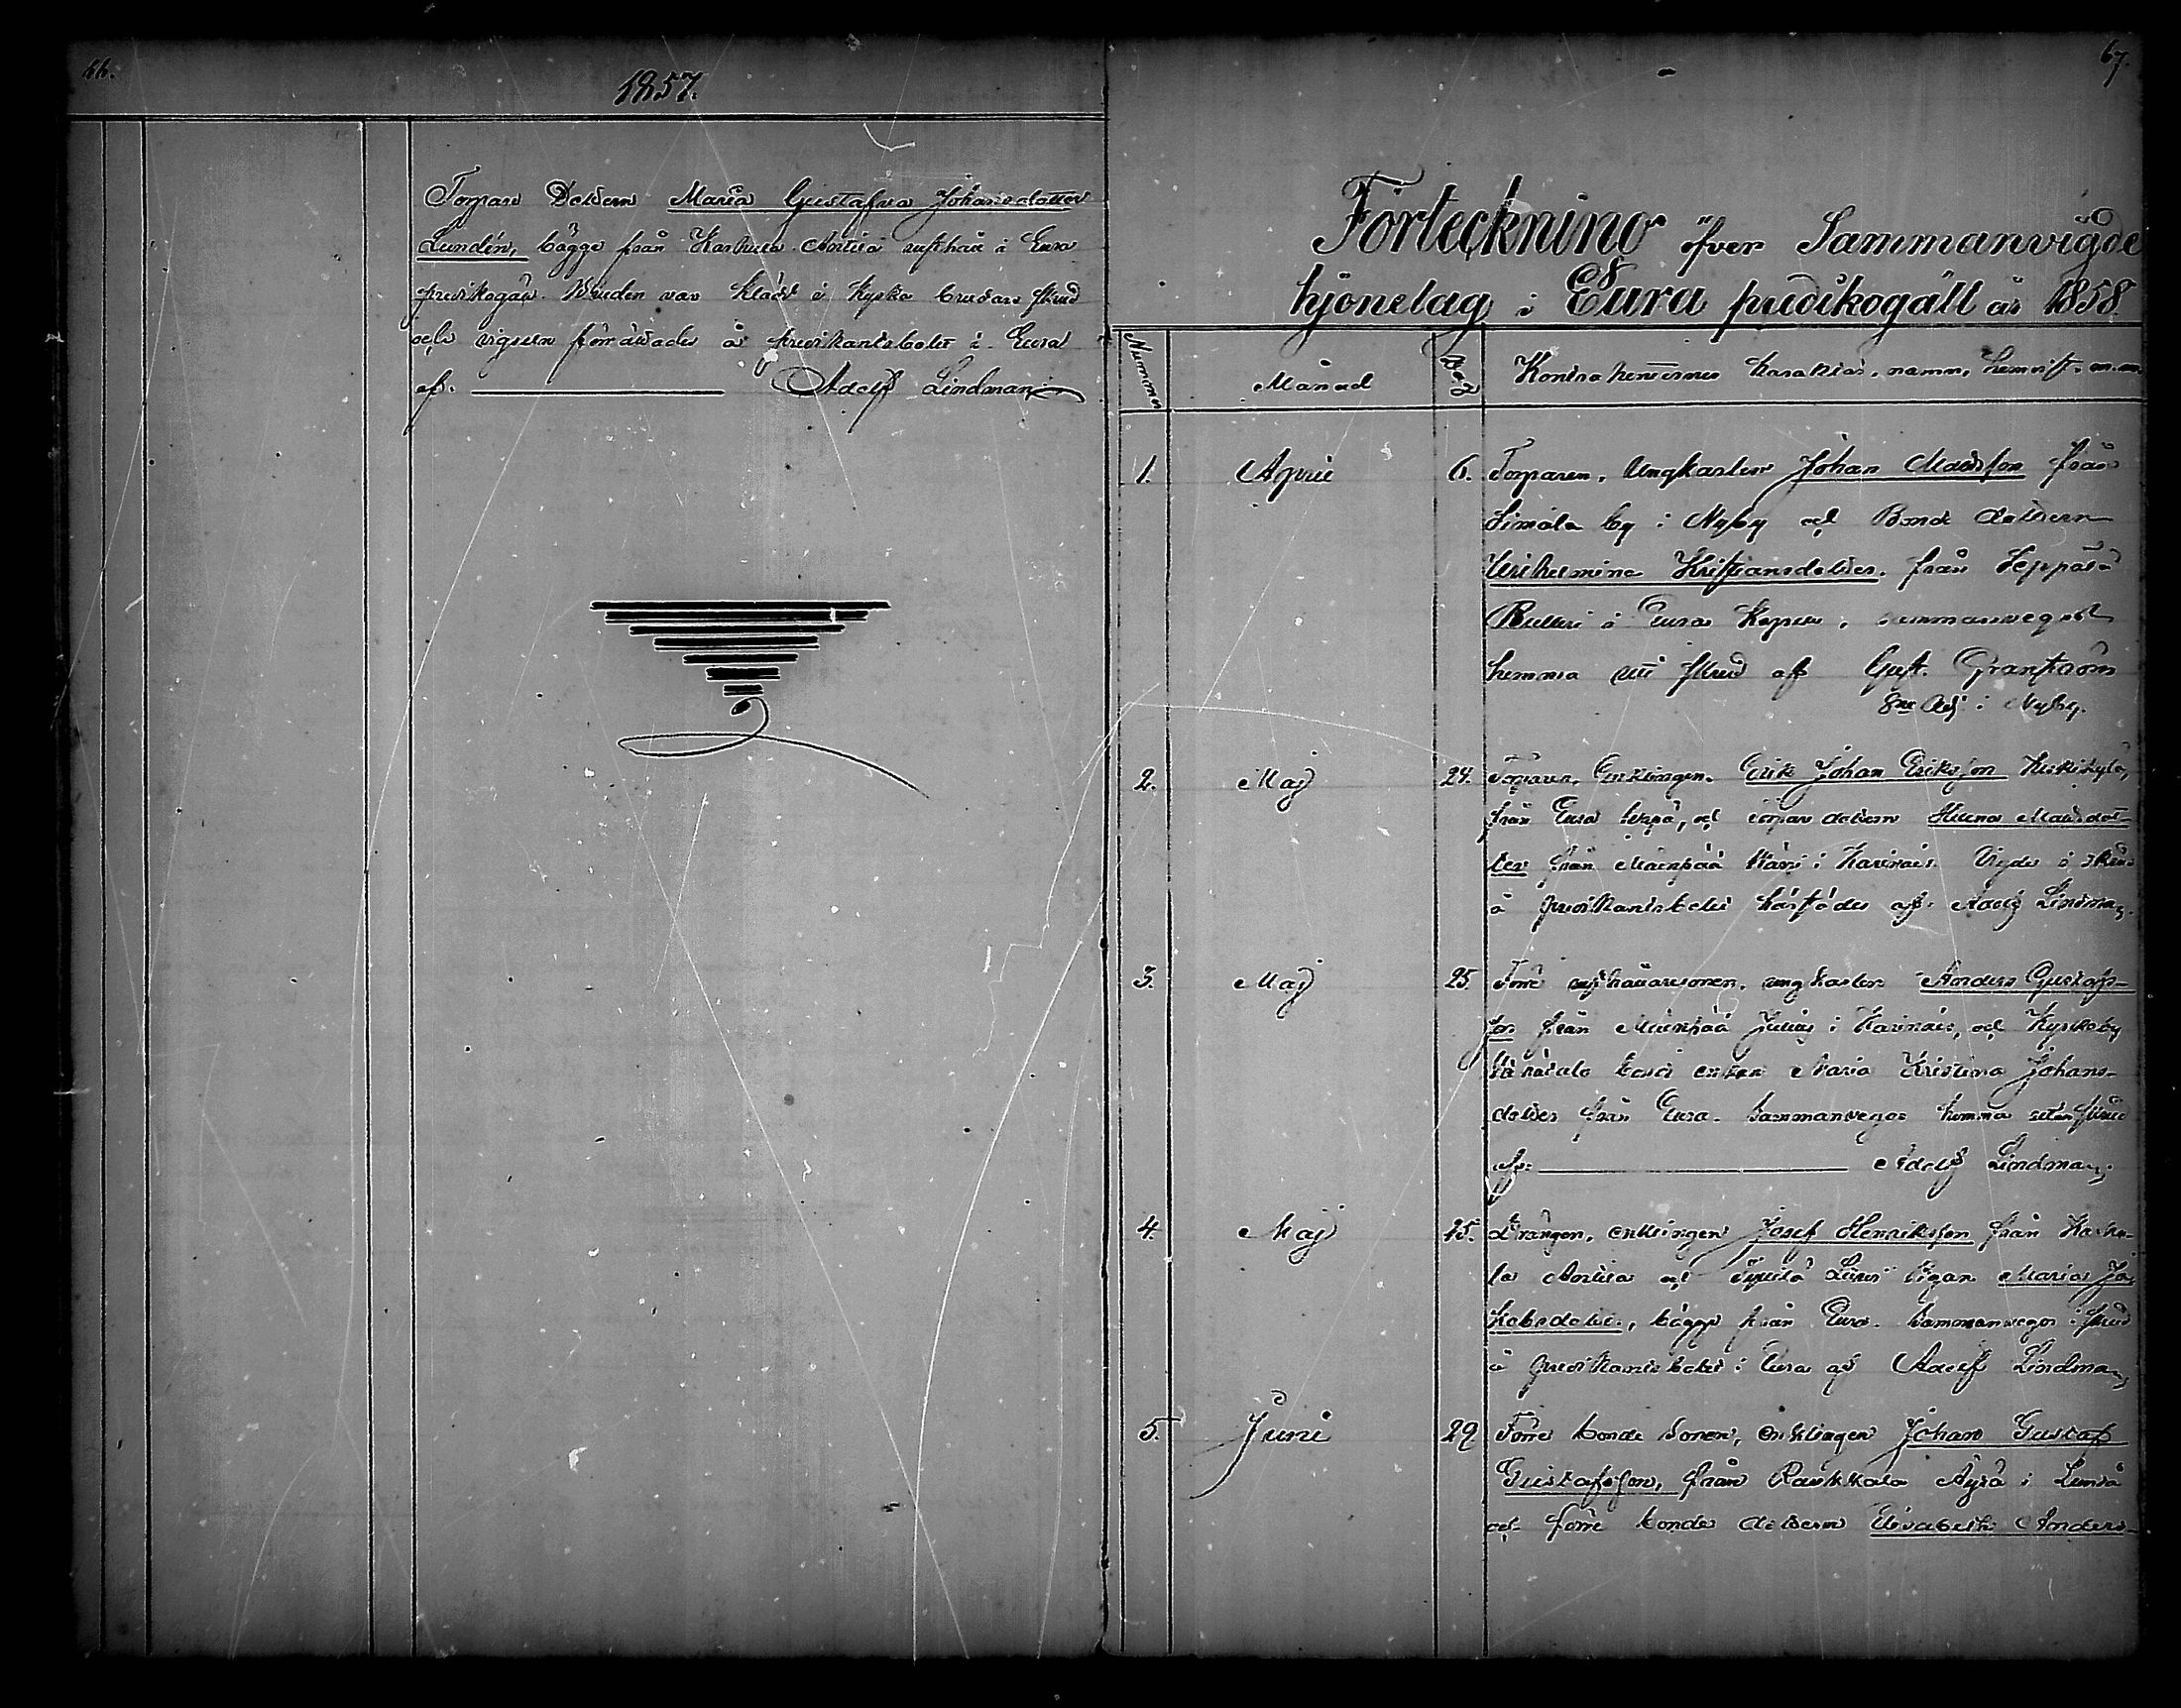 66.
1857.
Torpare Dottern Maria Gustafva Johansdotter
Lundén, bägge från Karhula Anttila rusthåll i Eura
predikogäll. Bruden var klädd i kyrko brudars skrud
och vigseln förrättades å predikantsbolet i Eura
af. Adolf Lindman
67.
Förteckning öfver Sammanvigde
hjonelag i Eura predikogäll år 1858.
Nummer
Månad
Dag
Kontrahenternes karakter, namn, hemvist. m.m.
1. April 6. Torparen, Ungkarlen Johan Matsson från
Simola by i Nyby och Bonde dottern
Wilhelmina Kristiansdotter. från Seppälä
i Eura Kapell, sammanvigde
hemma uti skrud af Gust. Granström
Adj. i Nyby.
2. Maj 24. Torparen, Enklingen. Erik Johan Eriksson
från Eura, och torpare dottern Helena Matsdot-
ter från Mäenpää i Karinais. Vigde i skrud
å predikantsbolet härstädes af. Adolf Lindman.
3. Maj 25. Förre rusthållaresonen, ungkarlen Anders Gustafs-
son från Mäenpää i Karinais, och Kyrkoby
enkan Maria Kristina Johans-
dotter från Eura. Sammanvigde hemma utan skrud
af: Adolf Lindman.
4. Maj 25. Drängen, enklingen Josef Henriksson från Karhu-
la Anttila och pigan Maria Ja-
kobsdotter., bägge från Eura. Sammanvigde i skrud
å predikantsbolet i Eura af Adolf Lindman
5. Juni 29 Förre bonde sonen, enklingen Johan Gustaf
Gustafsson, från Raukkala Äyrä i Lundo
och förre bonde dottern Elisabeth Anders-